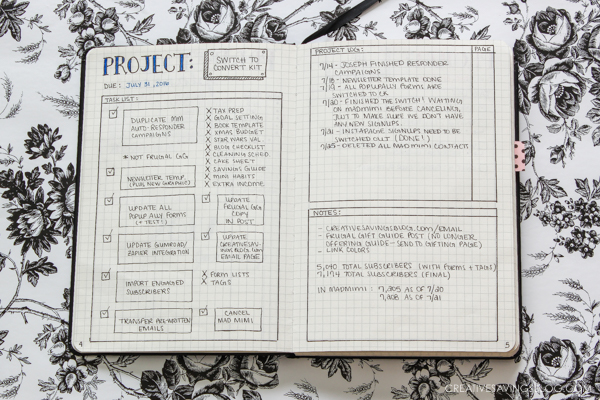 PROJECT:
SWITCH TO
CONVERT KIT
DUE: JULY 31, 2016
TASK LIST:
DUPLICATE MM
AUTO-RESPONDER
CAMPAIGNS
* NOT FRUGAL GG
NEWSLETTER TEMP.
(PLUS NEW GRAPHIC)
UPDATE ALL
POPUP ALLY FORMS
(+ TEST!)
UPDATE GUMROAD/
ZAPIER INTEGRATION
IMPORT ENGAGED
SUBSCRIBERS
TRANSFER ALL-WRITTEN
EMAILS
X TAX PREP
X GOAL SETTING
X BOOK TEMPLATE
X XMAS BUDGET
X STAR WARS VAL
X BLOG CHECKLIST
X CLEANING SCHED.
X CAKE SHEET
X SAVINGS GUIDE
X MINI HABITS
X EXTRA INCOME
UPDATE
FRUGAL GG
COPY
IN POST
UPDATE
CREATIVESAV-
INGSBLOG.COM
EMAIL PAGE
X FORM LISTS
X TAGS
CANCEL
MAD MIMI
4
PROJECT LOG:
PAGE
7/14 - JOSEPH FINISHED RESPONDER
CAMPAIGNS
7/18 - NEWSLETTER TEMPLATE DONE
7/19 - ALL POPUPALLY FORMS ARE
SWITCHED TO CK
7/20 - FINISHED THE SWITCH! WAITING
ON MADMIMI BEFORE CANCELING,
JUST TO MAKE SURE WE DON'T HAVE
ANY NEW SIGNUPS.
7/21 - INSTAPAGE SIGNUPS NEED TO BE
SWITCHED OUT (DONE!)
7/25 - DELETED ALL MADMIMI CONTACTS
NOTES:
- CREATIVESAVINGSBLOG.COM/EMAIL
- FRUGAL GIFT GUIDE POST (NO LONGER
OFFERING GUIDE - SEND TO GIFTING PAGE)
- LINK COLORS
5,040 TOTAL SUBSCRIBERS (WITH FORMS + TAGS)
7,194 TOTAL SUBSCRIBERS (FINAL)
IN MADMIMI: 7,305 AS OF 7/20
7,308 AS OF 7/21
5
CREATIVESAVINGSBLOG.COM